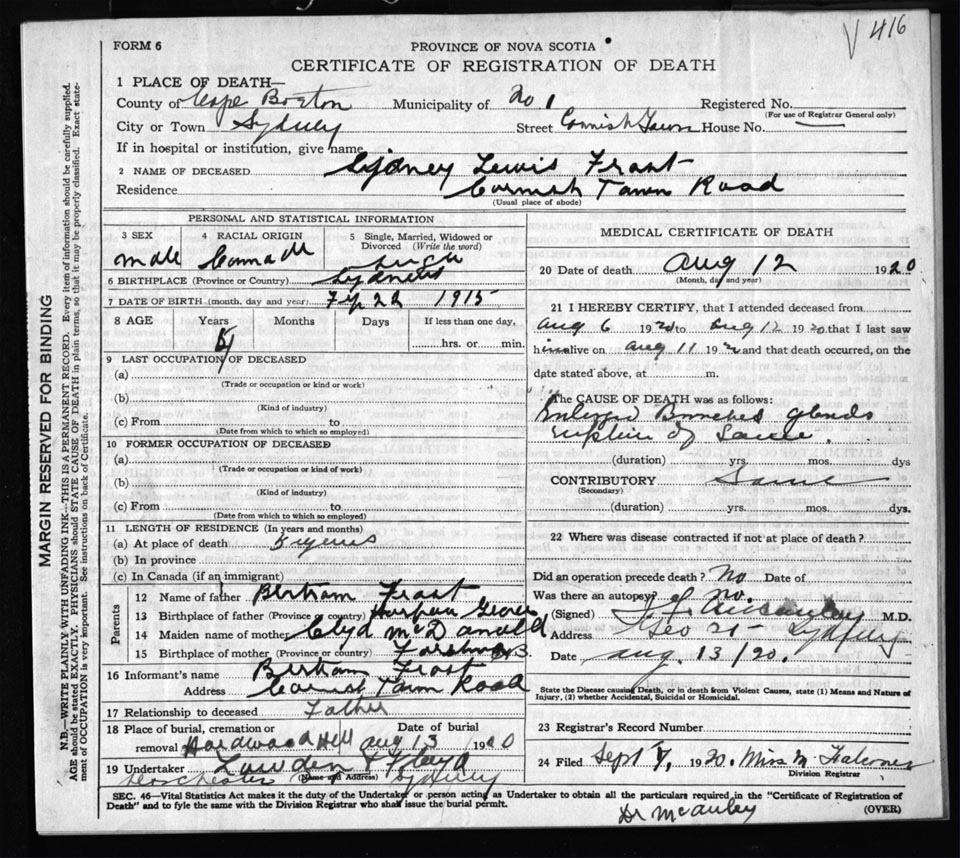 V 416
FORM 6
PROVINCE OF NOVA SCOTIA
CERTIFICATE OF REGISTRATION OF DEATH
MARGIN RESERVED FOR BINDING
N.B.—WRITE PLAINLY WITH UNFADING INK—THIS IS A PERMANENT RECORD. Every item of information should be carefully supplied.
AGE should be stated EXACTLY. PHYSICIANS should STATE CAUSE OF DEATH in plain terms, so that it may be properly classified. Exact state-
ment of OCCUPATION is very important. See instructions on back of Certificate.
1 PLACE OF DEATH—
County of Cape Breton Municipality of No 1 Registered No.
(For use of Registrar General only)
City or Town Sydney Street Cornish Town House No. —
If in hospital or institution, give name
2 NAME OF DECEASED Cydney Lewis Frost
Residence Cornish Town Road
(Usual place of abode)
PERSONAL AND STATISTICAL INFORMATION
3 SEX 4 RACIAL ORIGIN 5 Single, Married, Widowed or
Divorced (Write the word)
male
6 BIRTHPLACE (Province or Country)
7 DATE OF BIRTH (month, day and year) 22 1915
8 AGE Years Months Days If less than one day,
5 hrs. or min.
9 LAST OCCUPATION OF DECEASED
(a)
(Trade or occupation or kind or work)
(b)
(Kind of industry)
(c) From to
(Date from which to which so employed)
10 FORMER OCCUPATION OF DECEASED
(a)
(Trade or occupation or kind of work)
(b)
(Kind of industry)
(c) From to
(Date from which to which so employed)
11 LENGTH OF RESIDENCE (In years and months)
(a) At place of death 5 years
(b) In province
(c) In Canada (if an immigrant)
Parents
12 Name of father Bertram Frost
13 Birthplace of father (Province or country)
14 Maiden name of mother Clyd McDonald
15 Birthplace of mother (Province or country)
16 Informant's name Bertram Frost
Address Cornish Town Road
17 Relationship to deceased Father
18 Place of burial, cremation or Date of burial
removal Hardwood Hill aug 13 1920
19 Undertaker
(Name and Address) Dorchester Sydney
MEDICAL CERTIFICATE OF DEATH
20 Date of death Aug 12 1920
(Month, day and year)
21 I HEREBY CERTIFY, that I attended deceased from
Aug 6 1920 to aug 12 1920 that I last saw
him alive on aug 11 192 and that death occurred, on the
date stated above, at m.
The CAUSE OF DEATH was as follows:
glands
of Same.
(duration) yrs. mos. dys
CONTRIBUTORY Same
(Secondary)
(duration) yrs. mos. dys.
22 Where was disease contracted if not at place of death?
Did an operation precede death? No Date of
Was there an autopsy? No.
(Signed) M.D.
Address Geo St Sydney
Date aug. 13/20.
State the Disease causing Death, or in death from Violent Causes, state (1) Means and Nature of
Injury, (2) whether Accidental, Suicidal or Homicidal.
23 Registrar's Record Number
24 Filed Sept 7, 1920. Miss M Falconer
Division Registrar
SEC. 46—Vital Statistics Act makes it the duty of the Undertaker or person acting as Undertaker to obtain all the particulars required in the "Certificate of Registration of
Death" and to fyle the same with the Division Registrar who shall issue the burial permit. (OVER)
Dr McAuley